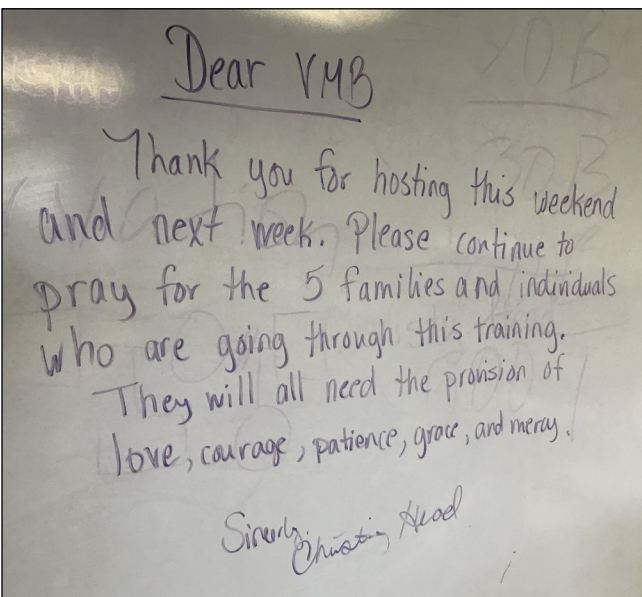 Dear VMB
Thank you for hosting this weekend
and next week. Please continue to
pray for the 5 families and individuals
who are going through this training.
They will all need the provision of
love, courage, patience, grace, and mercy.
Sincerely,
Head